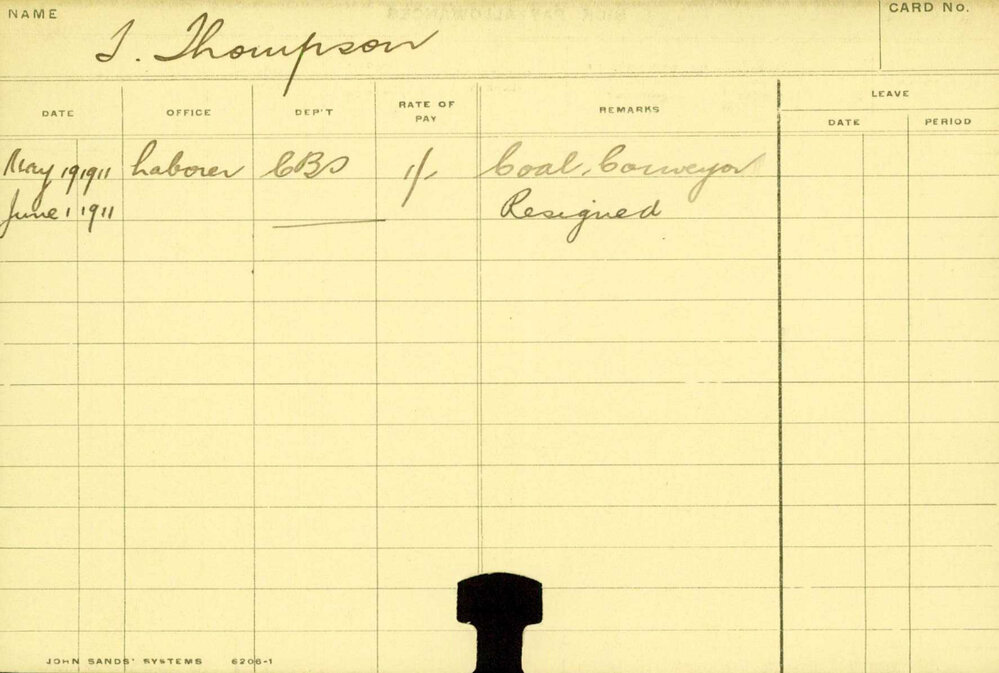 NAME
CARD No.
J. Thompson
LEAVE
DATE OFFICE DEP'T RATE OF PAY REMARKS DATE PERIOD
May 19 1911 Laborer CBS 1/- Coal Conveyor
June 1 1911 Resigned
JOHN SANDS' SYSTEMS 6206-1